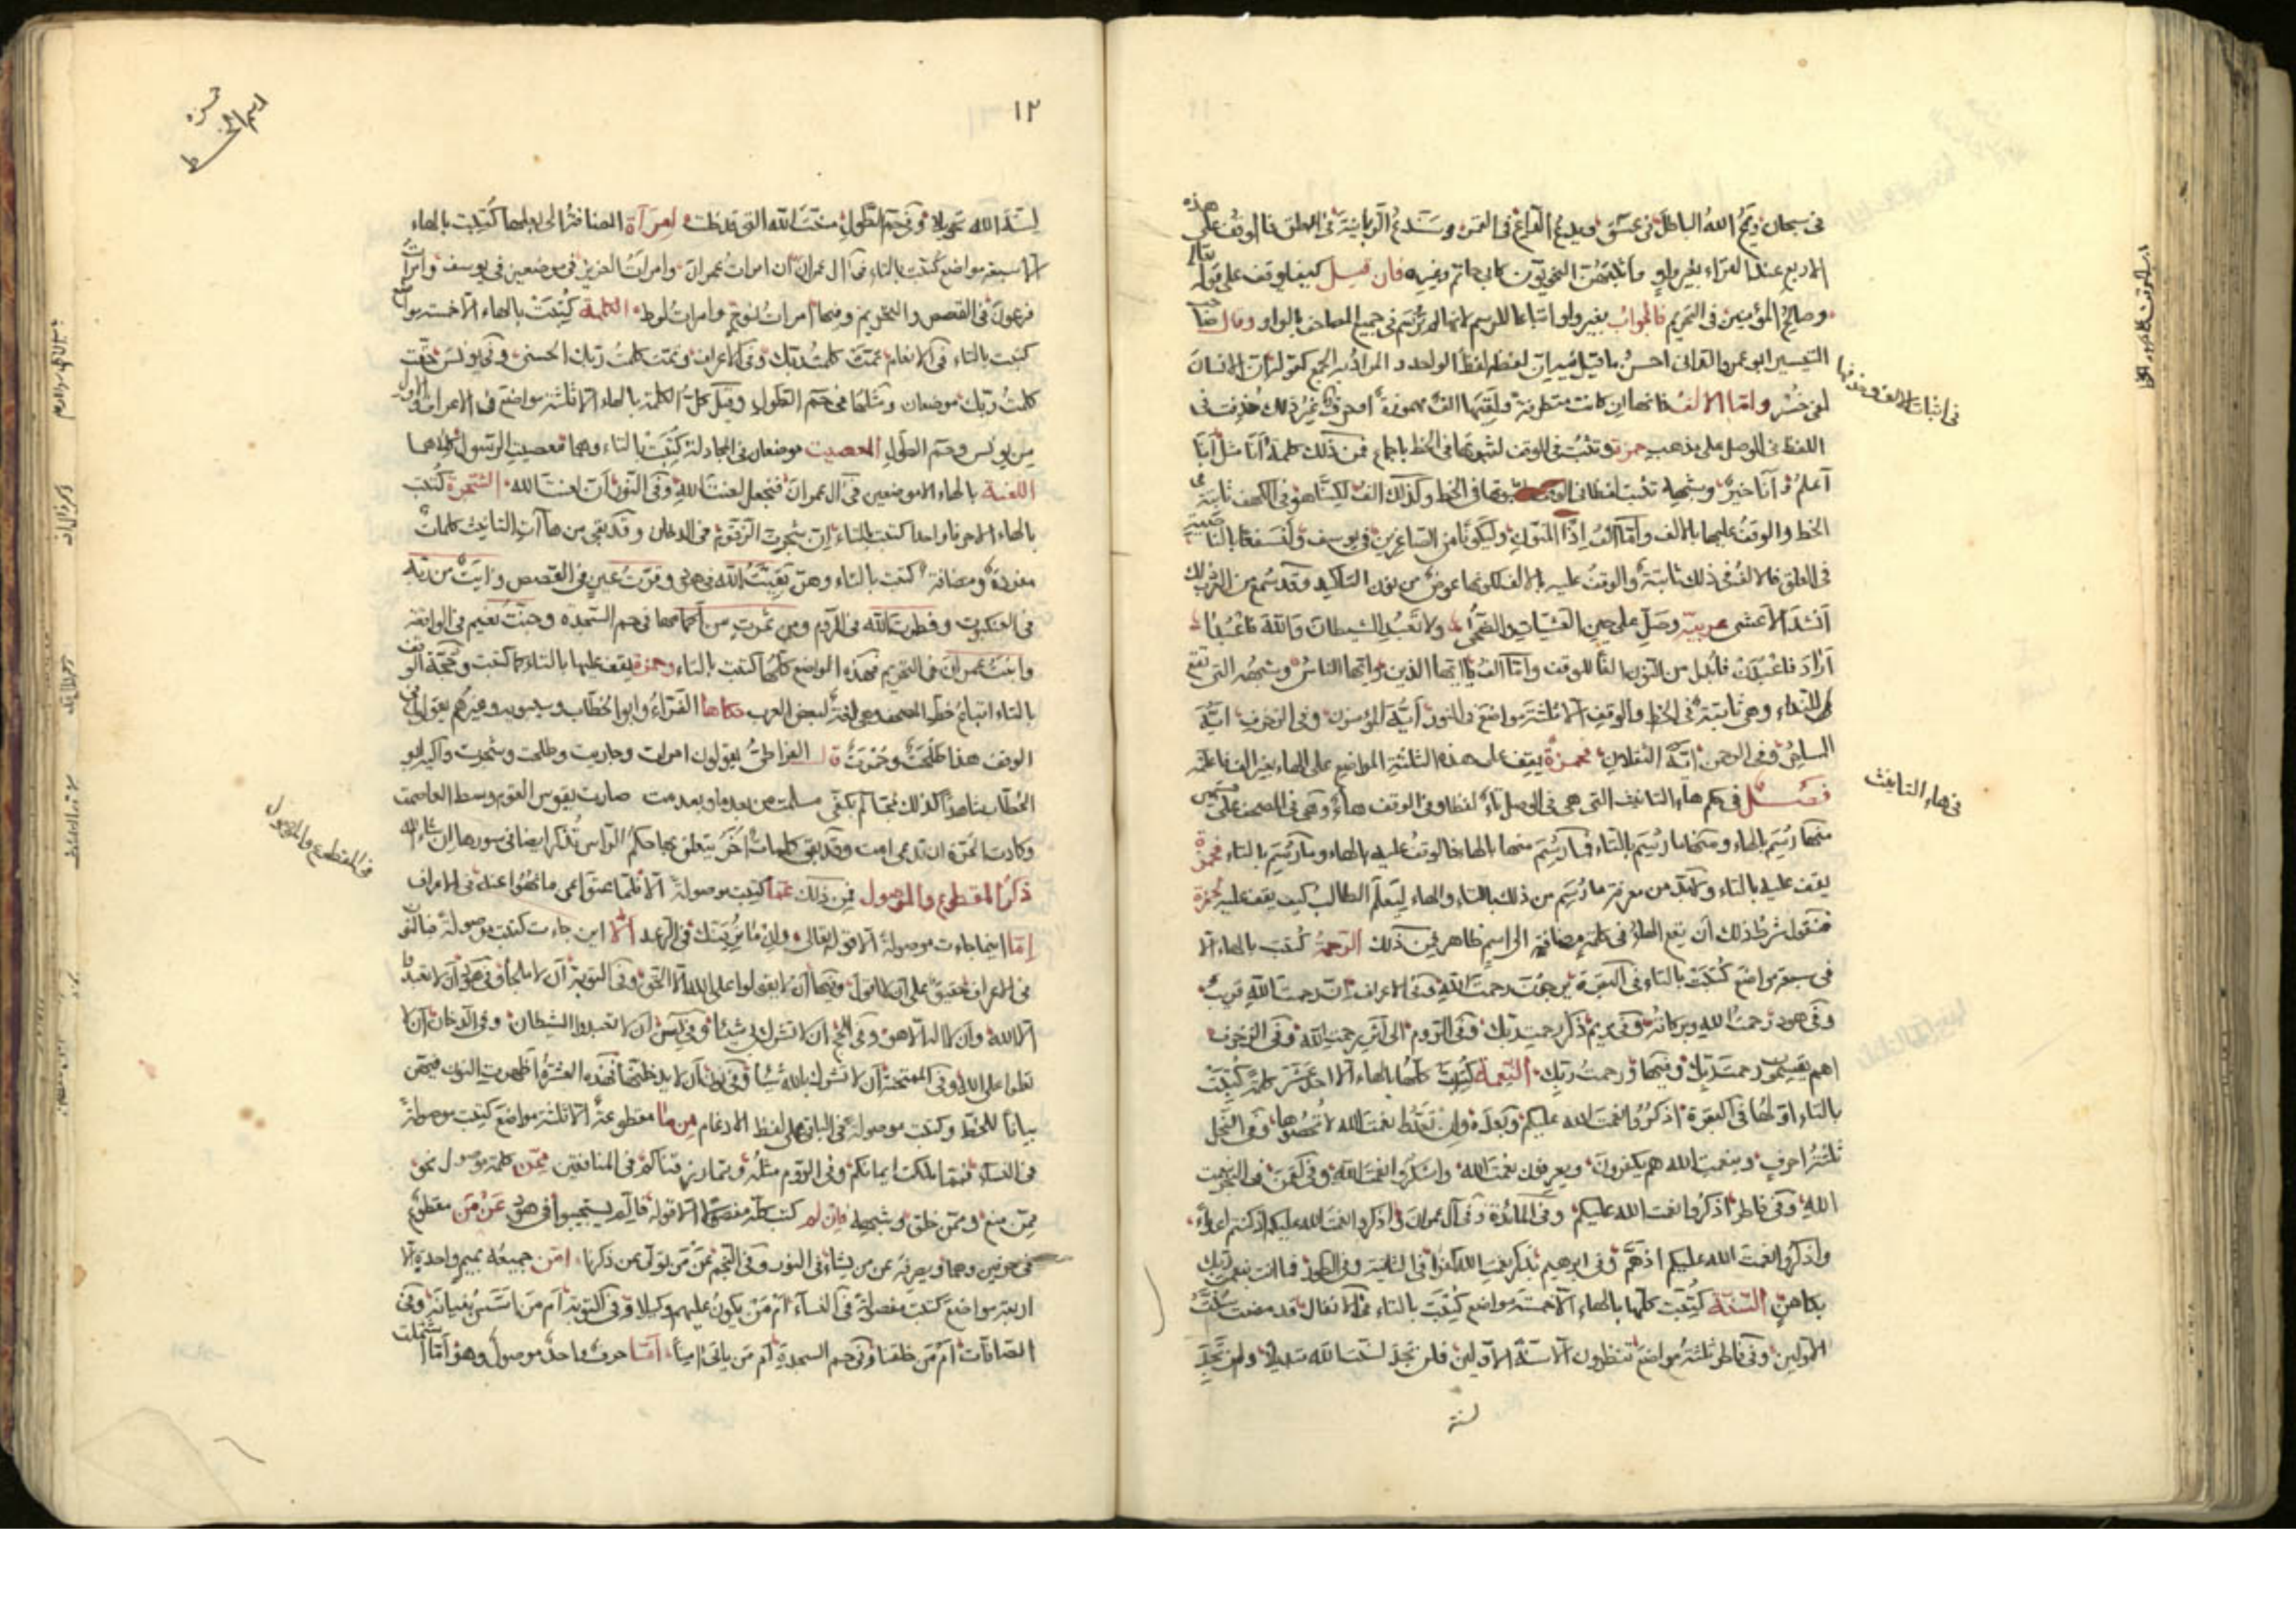 في سبحان ويمح الله الباطل في عسق ويدع الداع في القمر وسندع الزبانية في العلق فالوقف على هذه
الاربع عند القراء بغير واو فان قيل كيف يوقف على قوله تعالى
وصالح المؤمنين في التحريم فالجواب بغير واو اتباعا للرسم لانها لم ترسم في جميع المصاحف بالواو وقال صاحب
التيسير ابو عمرو الداني احسن ما قيل فيه ان لفظه لفظ الواحد والمراد به الجمع كقوله ان الانسان
لفي خسر واما الالف فانها ان كانت متطرفة ولقيتها الف مهموزة او حرف غير ذلك حذفت في
في اثبات الالف وحذفها
اللفظ في الوصل على مذهب حمزة وتثبت في الوقف لثبوتها في الخط باجماع فمن ذلك كلمة انا مثل انا
اعلم و انا خير وشبهه تثبت لفظا في الوقف لثبوتها في الخط وكذلك الف لكنا هو في الكهف ثابتة في
الخط والوقف عليها بالالف واما الف اذا المنون وليكونا من الصاغرين في يوسف ولنسفعا بالناصية
في العلق فالالف في ذلك ثابتة والوقف عليه بالالف لكونها عوض من نون التاكيد وقد سمع من العرب ذلك
انشد الاعشى وصل على حين العشيات والضحى ولا تعبد الشيطان والله فاعبدا
اراد فاعبدن فابدل من النون الفا للوقف واما الف يا ايها الذين ويا ايها الناس وشبهه التي تقع
للنداء وهي ثابتة في الخط والوقف الا ثلثة مواضع في النور ايه المؤمنون وفي الزخرف ايه
الساحر وفي الرحمن ايه الثقلان فحمزة يقف على هذه الثلثة المواضع على الهاء بغير الف فاعلمه
فصل في حكم هاء التانيث التي هي في الوصل تاء لفظا وفي الوقف هاء وهي في المصحف على قسمين
في هاء التانيث
منها رسم بالهاء ومنها ما رسم بالتاء فما رسم منها بالهاء فالوقف عليه بالهاء وما رسم بالتاء فحمزة
يقف عليه بالتاء ولا بد من معرفة ما رسم من ذلك بالتاء والهاء ليعلم الطالب كيف يقف عليه لحمزة
فنقول شرط ذلك ان تقع الهاء في كلمة مضافة الى اسم ظاهر فمن ذلك الرحمة كتبت بالهاء الا
في سبعة مواضع كتبت بالتاء في البقرة يرجون رحمت الله وفي الاعراف ان رحمت الله قريب
وفي هود رحمت الله وبركاته وفي مريم ذكر رحمت ربك وفي الروم الى اثر رحمت الله وفي الزخرف
اهم يقسمون رحمت ربك وفيها ورحمت ربك النعمة كتبت كلها بالهاء الا احد عشر كلمة كتبت
بالتاء اولها في البقرة اذكروا نعمت الله عليكم وبعده وان تعدوا نعمت الله لا تحصوها وفي النحل
ثلثة احرف وبنعمت الله هم يكفرون ويعرفون نعمت الله واشكروا نعمت الله وفي لقمن في البحر بنعمت
الله وفي فاطر اذكروا نعمت الله عليكم وفي المائدة وفي آل عمران واذكروا نعمت الله عليكم اذ كنتم اعداء
واذكروا نعمت الله عليكم اذ هم وفي ابرهيم نعمت الله كفرا في الثانية وفي الطور فما انت بنعمت ربك
بكاهن السنة كتبت كلها بالهاء الا خمسة مواضع كتبت بالتاء في الانفال فقد مضت سنت
الاولين وفي فاطر ثلثة مواضع ينظرون الا سنت الاولين فلن تجد لسنت الله تبديلا ولن تجد
لسنة
١٢
اسم الخط
لسنت الله تحويلا وفي حم الطول سنت الله التي قد خلت امراة المضافة الى بعلها كتبت بالهاء
الا سبعة مواضع كتبت بالتاء في ال عمران امرات عمران وامرات العزيز في موضعين في يوسف وامرات
فرعون في القصص والتحريم وفيها امرات نوح وامرات لوط الكلمة كتبت بالهاء الا خمسة مواضع
كتبت بالتاء في الانعام تمت كلمت ربك وفي الاعراف وتمت كلمت ربك الحسنى وفي يونس حقت
كلمت ربك موضعان ومثلها في حم الطول وقيل كل الكلمة بالهاء الا ثلثة مواضع في الاعراف والاول
من يونس وحم الطول المعصيت موضعان في المجادلة كتبت بالتاء وهما معصيت الرسول كلاهما
اللعنة بالهاء الا موضعين في ال عمران فنجعل لعنت الله وفي النور ان لعنت الله الشجرة كتبت
بالهاء الا حرفا واحدا كتبت بالتاء ان شجرت الزقوم في الدخان وقد بقي من هاآت التانيث كلمات
مفردة ومضافة كتبت بالتاء وهن بقيت الله في هود وقرت عين في القصص وايت من ربه
في العنكبوت وفطرت الله في الروم ومن ثمرت من اكمامها في حم السجدة وجنت نعيم في الواقعة
وابنت عمران في التحريم فهذه المواضع كلها كتبت بالتاء وحمزة يقف عليها بالتاء كما كتبت وحجة الوقف
بالتاء اتباع خط المصحف وهي لغة لبعض العرب حكاها الفراء وابو الخطاب وسيبويه وغيرهم يقولون في
الوقف هذا طلحت وحمزت قال الفراء طي يقولون امرات وجاريت وطلحت وشجرت وانشد ابو
الخطاب شاهدا لذلك الله نجاك بكفي مسلمت من بعدما وبعدمت صارت نفوس القوم وسط الغلصمت
وكادت الحرة ان تدعى امت وقد بقي كلمات اخر يتعلق بها حكم الراس تذكر ايضا في سورها ان شاء الله
في المقطوع والموصول
ذكر المقطوع والموصول فمن ذلك عما كتبت موصولة الا فلما عتوا عن ما نهوا عنه في الاعراف
اما اينما جاءت موصولة الا قوله تعالى وان ما نرينك في الرعد الا اين جاءت كتبت موصولة
في الاعراف حقيق على ان لا اقول وفيها ان لا يقولوا على الله الا الحق وفي التوبة ان لا ملجأ وفي هود ان لا تعبدوا
الا الله وان لا اله الا هو وفي الحج ان لا تشرك بي شيئا وفي يس ان لا تعبدوا الشيطان وفي الدخان ان لا
تعلوا على الله وفي الممتحنة ان لا تشرك بالله شيئا وفي ن ان لا يدخلنها فهذه العشرة اظهرت النون فيهن
بيانا للخط وكتبت موصولة في الباقي على لفظ الادغام من ما مقطوعة الا ثلثة مواضع كتبت موصولة
في النساء فمما ملكت ايمانكم وفي الروم مثله ومما رزقناكم في المنافقين ممن كلمة موصول نحو
ممن منع وممن خلق وشبهه فان لم كتب كله مفصولا الا قوله فالم يستجيبوا في هود عن من مقطوع
في حرفين وهما ويصرفه عن من يشاء في النور وفي النجم عن من تولى عن ذكرنا امن جميعه بميم واحدة الا
اربعة مواضع كتبت مفصولة في النساء ام من يكون عليهم وكيلا وفي التوبة ام من اسس بنيانه وفي
الصافات ام من خلقنا وفي حم السجدة ام من ياتي امنا اما حرف واحد موصول وهو اما اشتملت